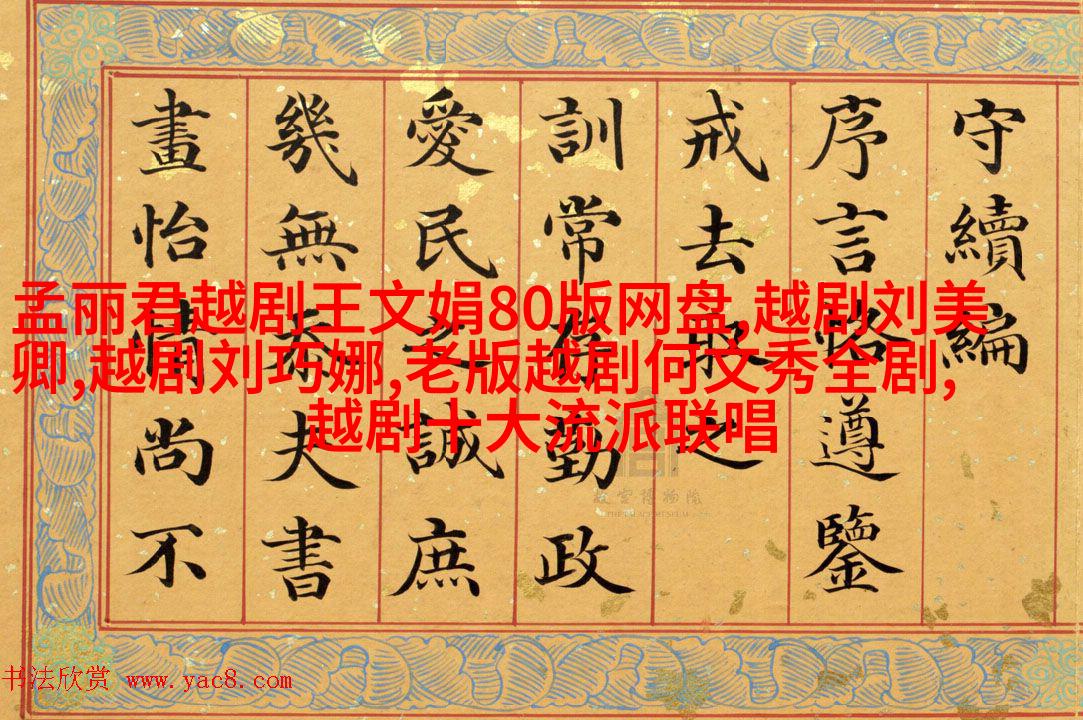 守續編
序言恪遵鑒
戒去取之
訓常存勤政
愛民之誠庶
幾無忝夫書
畫怡情尚不
孟丽君越剧王文娟80版网盘,越剧刘美
卿,越剧刘巧娜,老版越剧何文秀全剧,
越剧十大流派联唱
故宫博物院
THE PALACE MUSEUM
书法欣赏 www.yac8.com